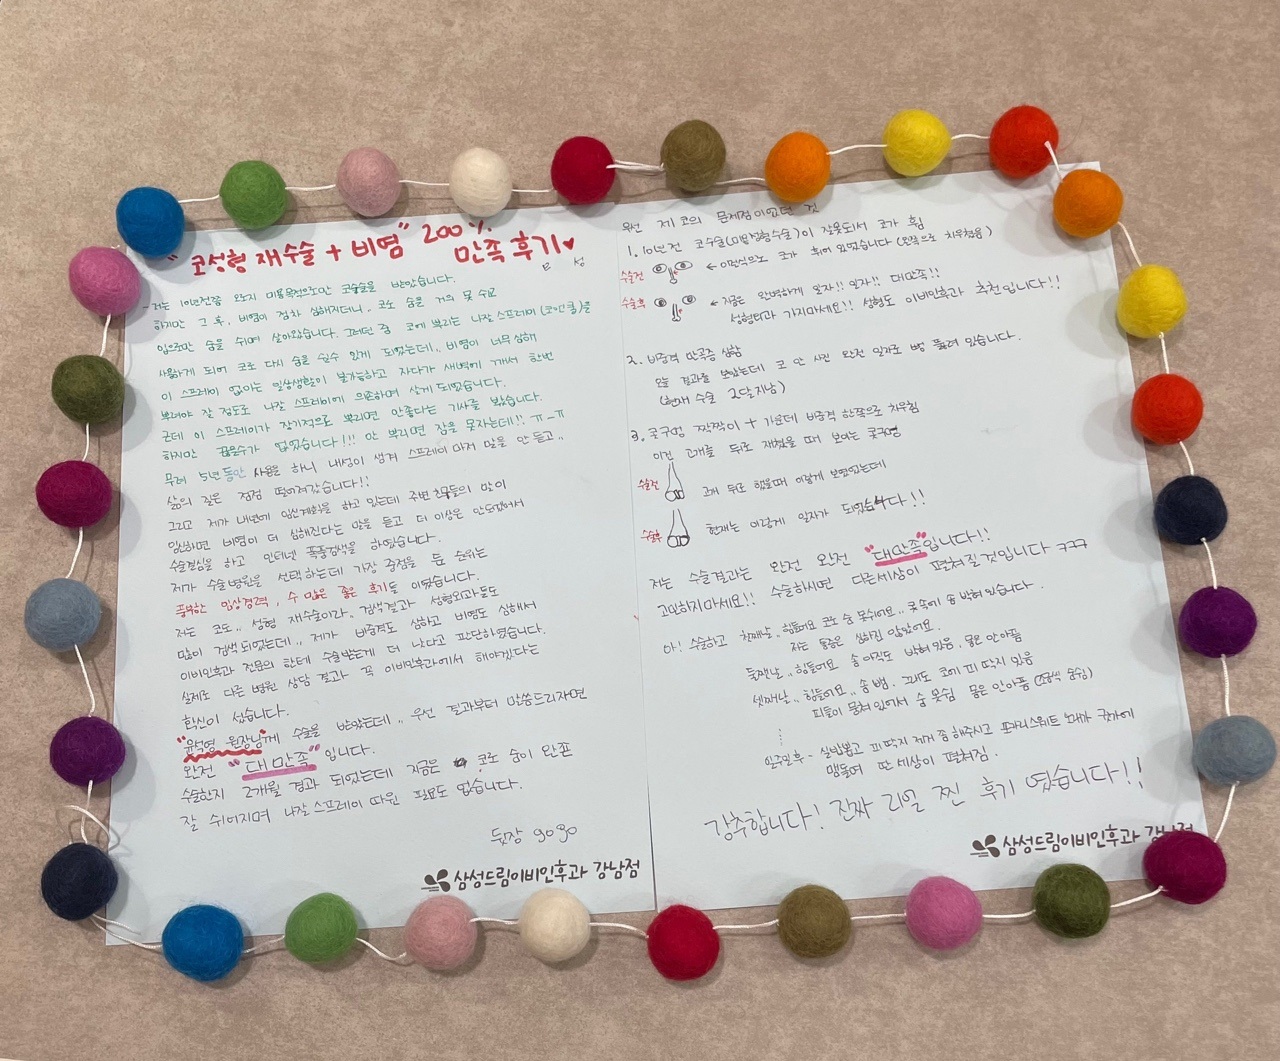 "코성형 재수술 + 비염" 200%
만족 후기♥
- 저는 10년전쯤 완전히 미용목적으로만 코수술을 받았습니다.
하지만 그 후, 비염이 점차 심해지더니, 코로 숨을 거의 못 쉬고
입으로만 숨을 쉬며 살아왔습니다. 그러던 중 코에 뿌리는 나잘 스프레이 (코앤쿨)를
사용하게 되어 코로 다시 숨을 쉴수 있게 되었는데.. 비염이 너무 심해
이 스프레이 없이는 일상생활이 불가능하고 자다가 새벽에 깨서 한번
뿌려야 잘 정도로 나잘 스프레이에 의존하며 살게 되었습니다.
근데 이 스프레이가 장기적으로 뿌리면 안좋다는 기사를 봤습니다.
하지만 끊을수가 없었습니다!!! 안 뿌리면 잠을 못자는데!! ㅠ-ㅠ
무려 5년동안 사용을 하니 내성이 생겨 스프레이 마저 말을 안 듣고..
삶의 질은 점점 떨어져갔습니다!!
그리고 제가 내년에 임신계획을 하고 있는데 주변 친구들의 말이
임신하면 비염이 더 심해진다는 말을 듣고 더 이상은 안되겠어서
수술결심을 하고 인터넷 폭풍검색을 하였습니다.
제가 수술병원을 선택하는데 가장 중점을 둔 순위는
풍부한 임상경력, 수 많은 좋은 후기들 이였습니다.
저는 코도.. 성형 재수술이라.. 검색결과 성형외과들도
많이 검색 되었는데.. 제가 비중격도 심하고 비염도 심해서
이비인후과 전문의 한테 수술받는게 더 낫다고 판단하였습니다.
실제로 다른 병원 상담 결과 꼭 이비인후과에서 해야겠다는
확신이 섰습니다.
"윤석영 원장님"께 수술을 받았는데.. 우선 결과부터 말씀드리자면
완전 "대만족" 입니다.
수술한지 2개월 경과 되었는데 지금은 코로 숨이 완죤
잘 쉬어지며 나잘 스프레이 따윈 필요도 없습니다.
뒷장 gogo
삼성드림이비인후과 강남점
우선 제 코의 문제점이였던 것
1. 10년전 코수술(미용성형수술)이 잘못되서 코가 휨
수술전 ← 이런식으로 코가 휘어 있었습니다 (왼쪽으로 치우쳤음)
수술후 ← 지금은 완벽하게 일자!! 일자!! 대만족!!
성형외과 가지마세요!! 성형도 이비인후과 추천입니다!!
2. 비중격 만곡증 심함
오늘 결과를 보았는데 코 안 사진 완전 일자로 뻥 뚫려 있습니다.
(현재 수술 2달지남)
3. 콧구멍 짝짝이 + 가운데 비중격 한쪽으로 치우침
이전 고개를 뒤로 재꼈을 때 보이는 콧구멍
수술전 고개 뒤로 했을때 이렇게 보였었는데
수술후 현재는 이렇게 일자가 되었습니다!!
저는 수술결과는 완전 완전 "대만족"입니다!!
고민하지마세요!! 수술하시면 다른세상이 펼쳐질것입니다 ㅋㅋㅋ
아! 수술하고 첫째날.. 힘들어요 코로 숨 못쉬어요.. 콧속에 솜 박혀 있습니다.
저는 통증은 심하진 않았어요.
둘째날.. 힘들어요.. 솜 아직도 박혀있음. 몸은 안아픔
셋째날.. 힘들어요.. 솜 뺌. 그래도 코에 피 딱지 있음
피들이 뭉쳐 있어서 숨 못쉼 몸은 안아픔 (조금씩 숨쉼)
일주일후 - 실밥뽑고 피딱지 제거 좀 해주시고 포카리스웨트 노래가 귓가에
맴돌며 딴 세상이 펼쳐짐.
강추합니다! 진짜 리얼 찐 후기 였습니다!!
삼성드림이비인후과 강남점